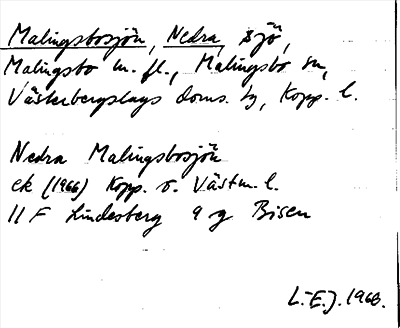 Malingsbosjön, Nedra, sjö,
Malingsbo m. fl., Malingsbo sn,
Västerbergslags doms. tg, Kopp. l.
Nedra Malingsbosjön
ek (1966) Kopp. o. Västm. l.
11 F Lindesberg 9 g Bisen
L.-E.J. 1968.